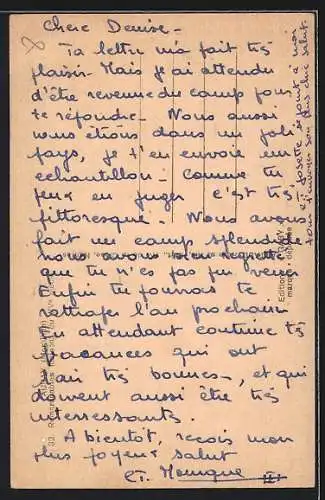 Chere Denise -
Ta lettre m'a fait très
plaisir - Mais j'ai attendu
d'être revenue du camp pour
te répondre - Nous aussi
nous étions dans un joli
pays, je t'en envoie un
échantillon - Comme tu
peux en juger c'est très
pittoresque - Nous avons
fait un camp splendide
nous avons bien regretté
que tu n'es pas pu venir
Enfin tu pourras te
rattraper l'an prochain
En attendant continue tes
vacances qui ont
l'air très bonnes - et qui
doivent aussi être très
interessants -
A bientôt, reçois mon
plus joyeux salut
Monique
Josette se joint à moi
pour t'envoyer son plus chic salut.
Editions
marque déposée